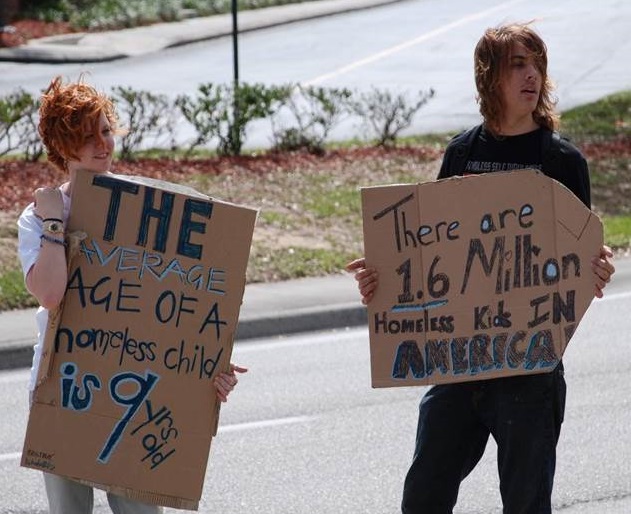 THE
AVERAGE
AGE OF A
homeless child
is 9 yrs
old
There are
1.6 Million
Homeless Kids IN
AMERICA!